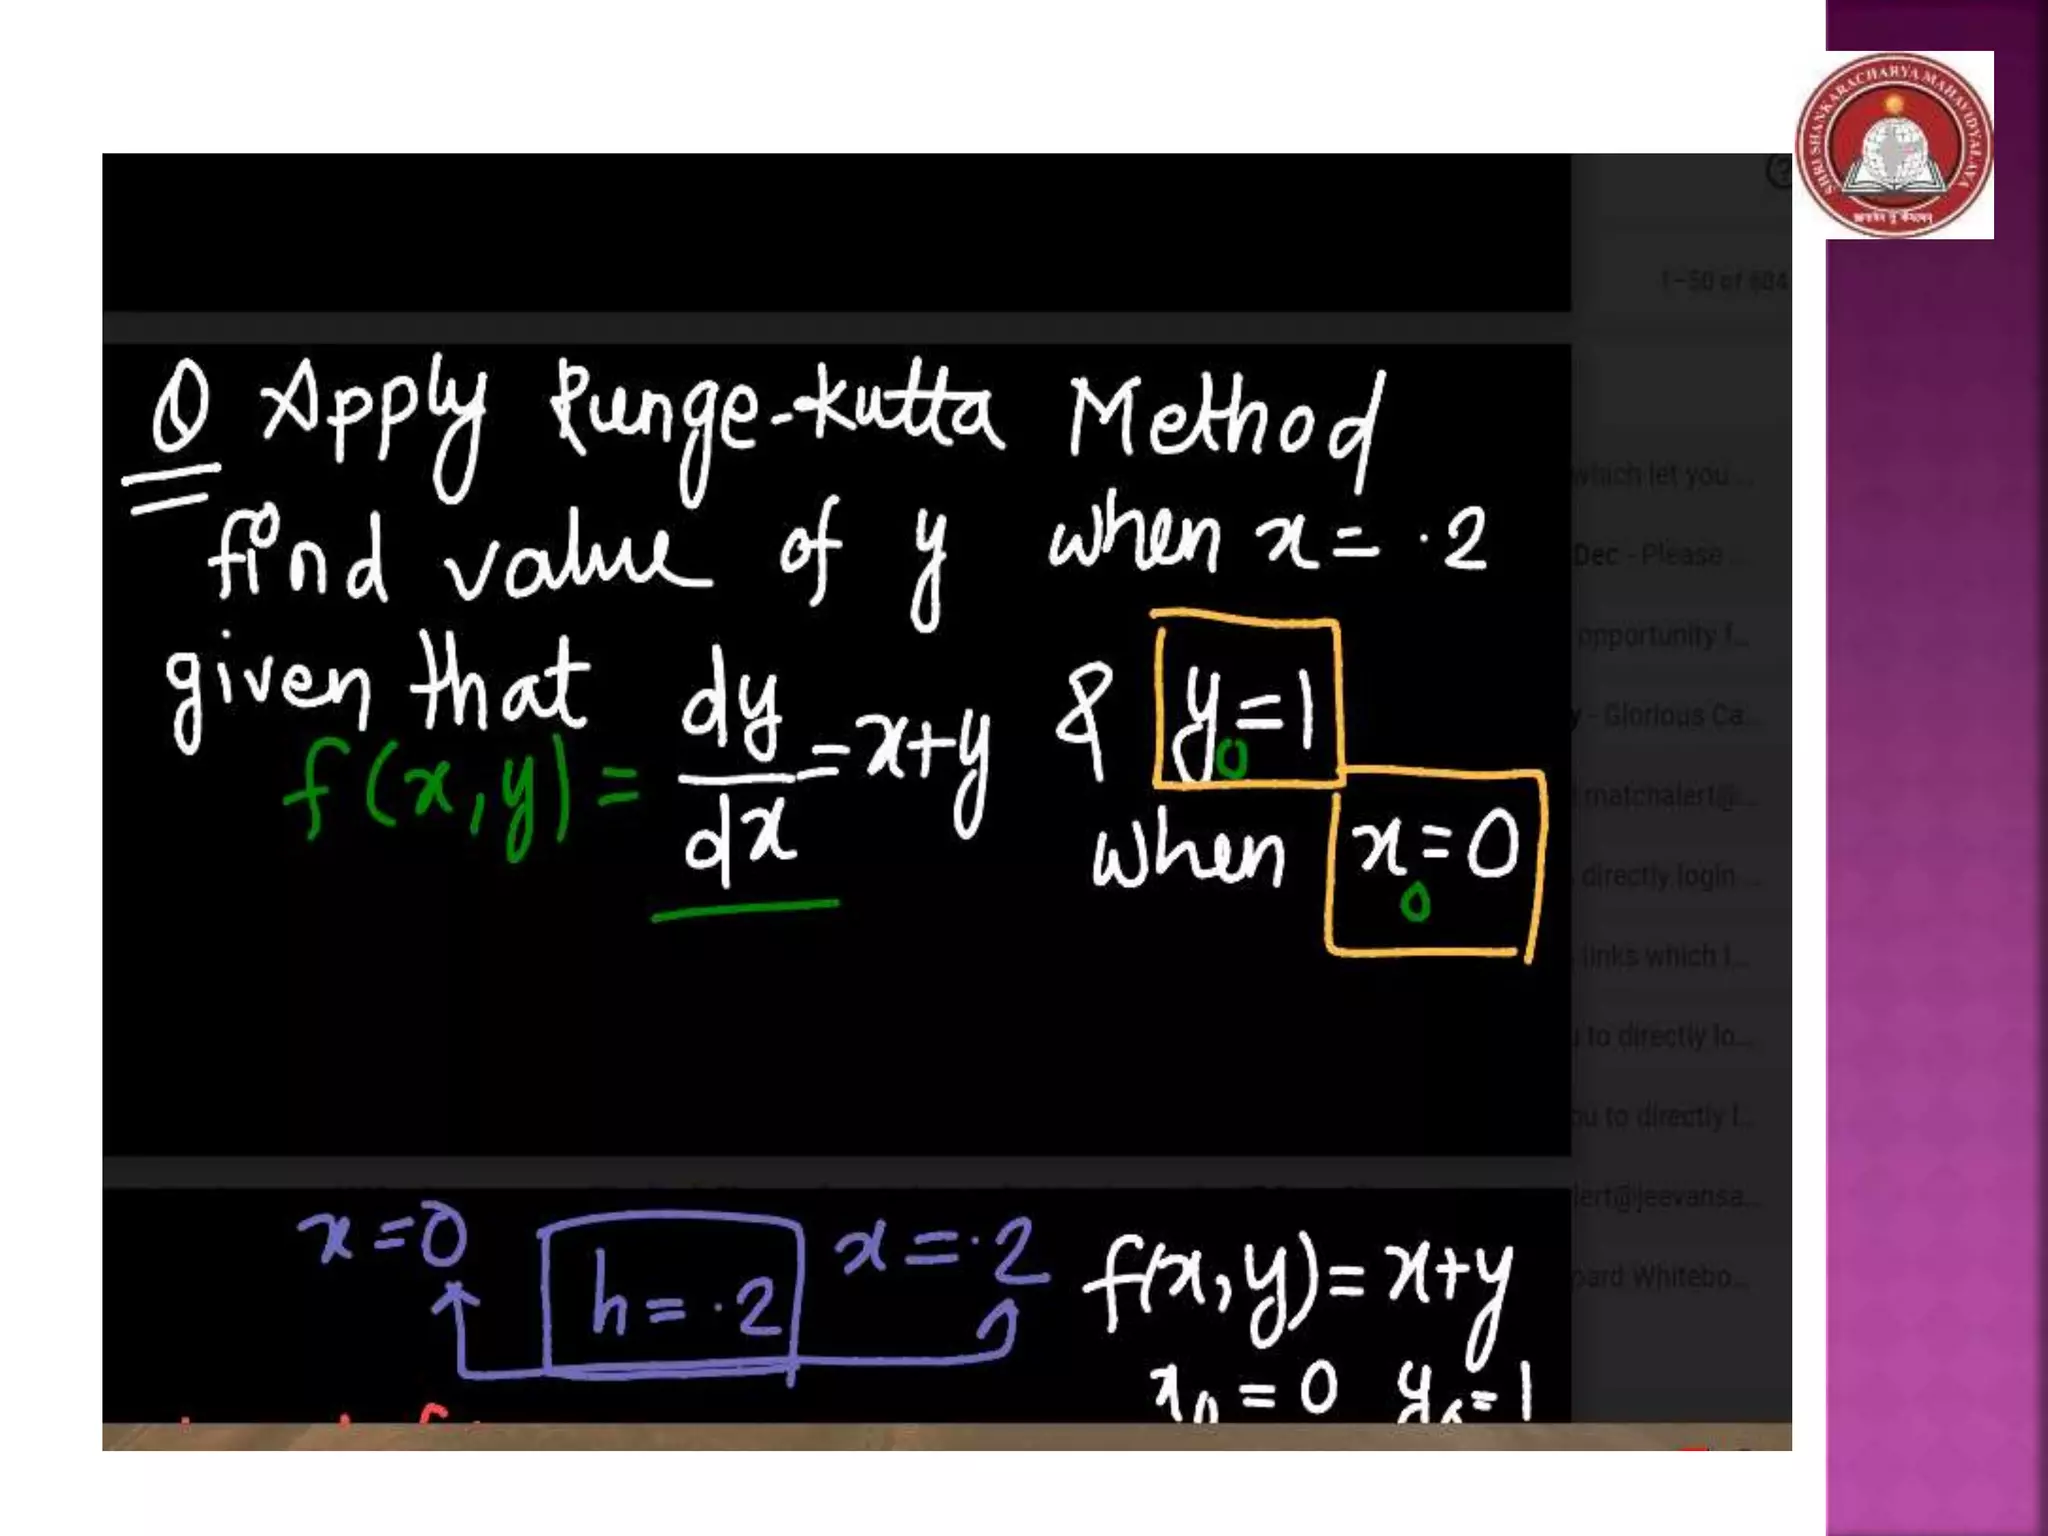 SHRI SHANKARACHARYA MAHAVIDYALAYA
1-50 of 604
Q Apply Runge-Kutta Method
find value of y when x = .2
given that dy/dx = x+y & y₀=1
f(x,y) =
when x₀=0
which let you...
Dec - Please ...
opportunity f...
y - Glorious Ca...
matchalert@r...
directly login ...
links which l...
u to directly lo...
ou to directly l...
lert@jeevansa...
oard Whitebo...
x=0 h=.2 x=.2 f(x,y)=x+y
x₀=0 y₀=1